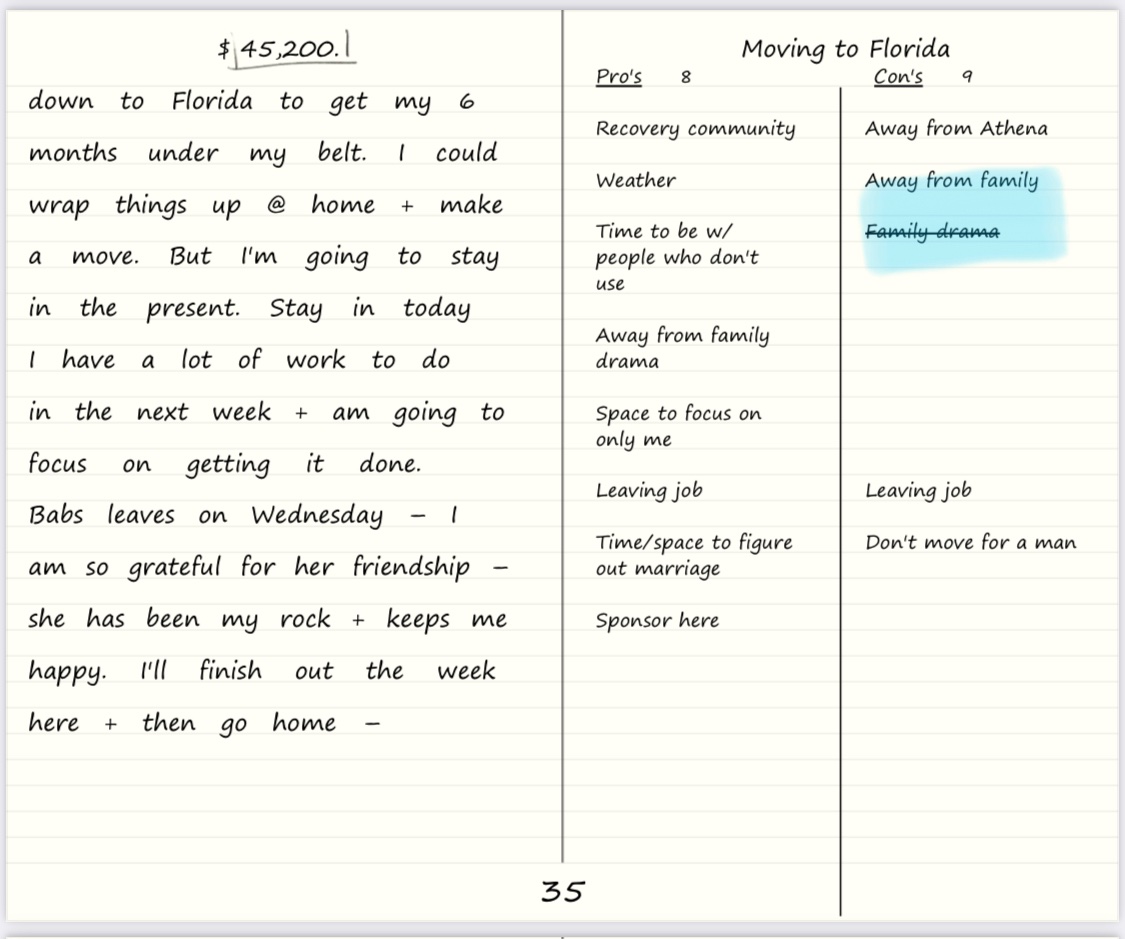 $ 45,200.
down to Florida to get my 6
months under my belt. I could
wrap things up @ home + make
a move. But I'm going to stay
in the present. Stay in today
I have a lot of work to do
in the next week + am going to
focus on getting it done.
Babs leaves on Wednesday – I
am so grateful for her friendship –
she has been my rock + keeps me
happy. I'll finish out the week
here + then go home –
Moving to Florida
Pro's 8
Recovery community
Weather
Time to be w/
people who don't
use
Away from family
drama
Space to focus on
only me
Leaving job
Time/space to figure
out marriage
Sponsor here
Con's 9
Away from Athena
Away from family
Family drama
Leaving job
Don't move for a man
35